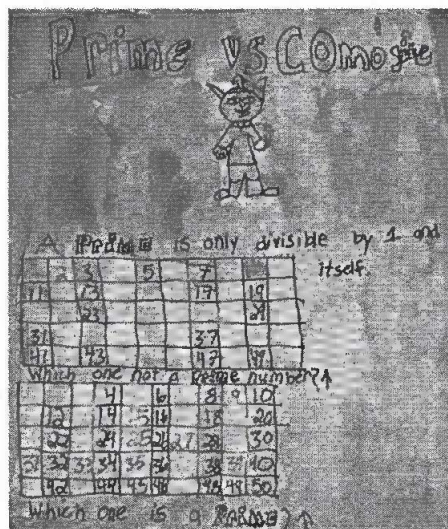 Prime vs
A PRIME is only divisible by 1 and
itself.
2 3 5 7
11 13 17 19
23 29
31 37
41 43 47 49
Which one not a prime number?↑
4 6 8 9 10
12 14 15 16 18 20
22 24 25 26 27 28 30
31 32 33 34 35 36 38 39 40
42 44 45 46 48 49 50
Which one is a PRIME?↑